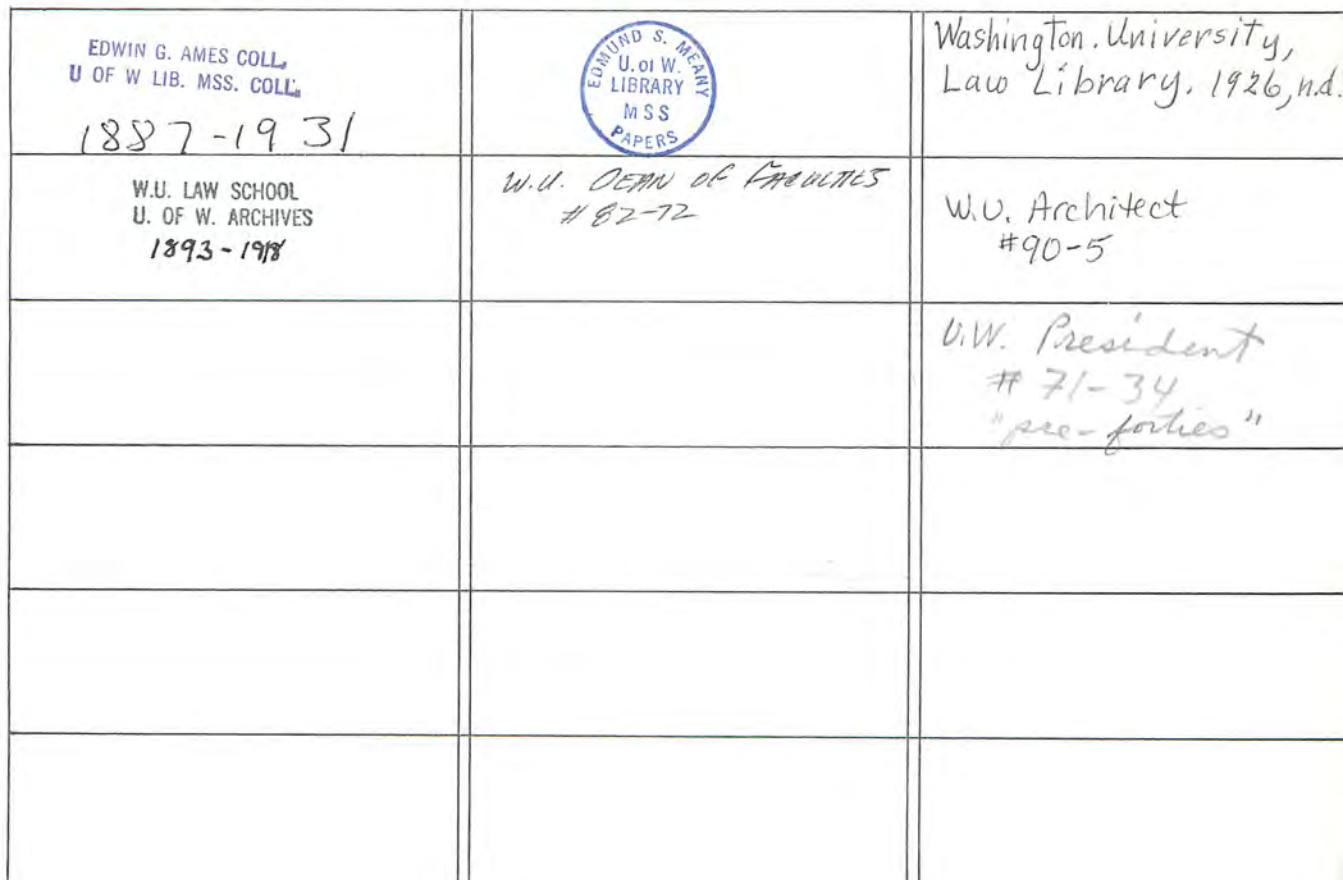 EDWIN G. AMES COLL.
U OF W LIB. MSS. COLL.
1887-1931
EDMUND S. MEANY
U. of W.
LIBRARY
MSS
PAPERS
Washington. University,
Law Library. 1926, n.d.
W.U. LAW SCHOOL
U. OF W. ARCHIVES
1893-1918
W.U. DEAN OF FACULTIES
#82-72
W.U. Architect
#90-5
U.W. President
# 71-34
"pre-forties"